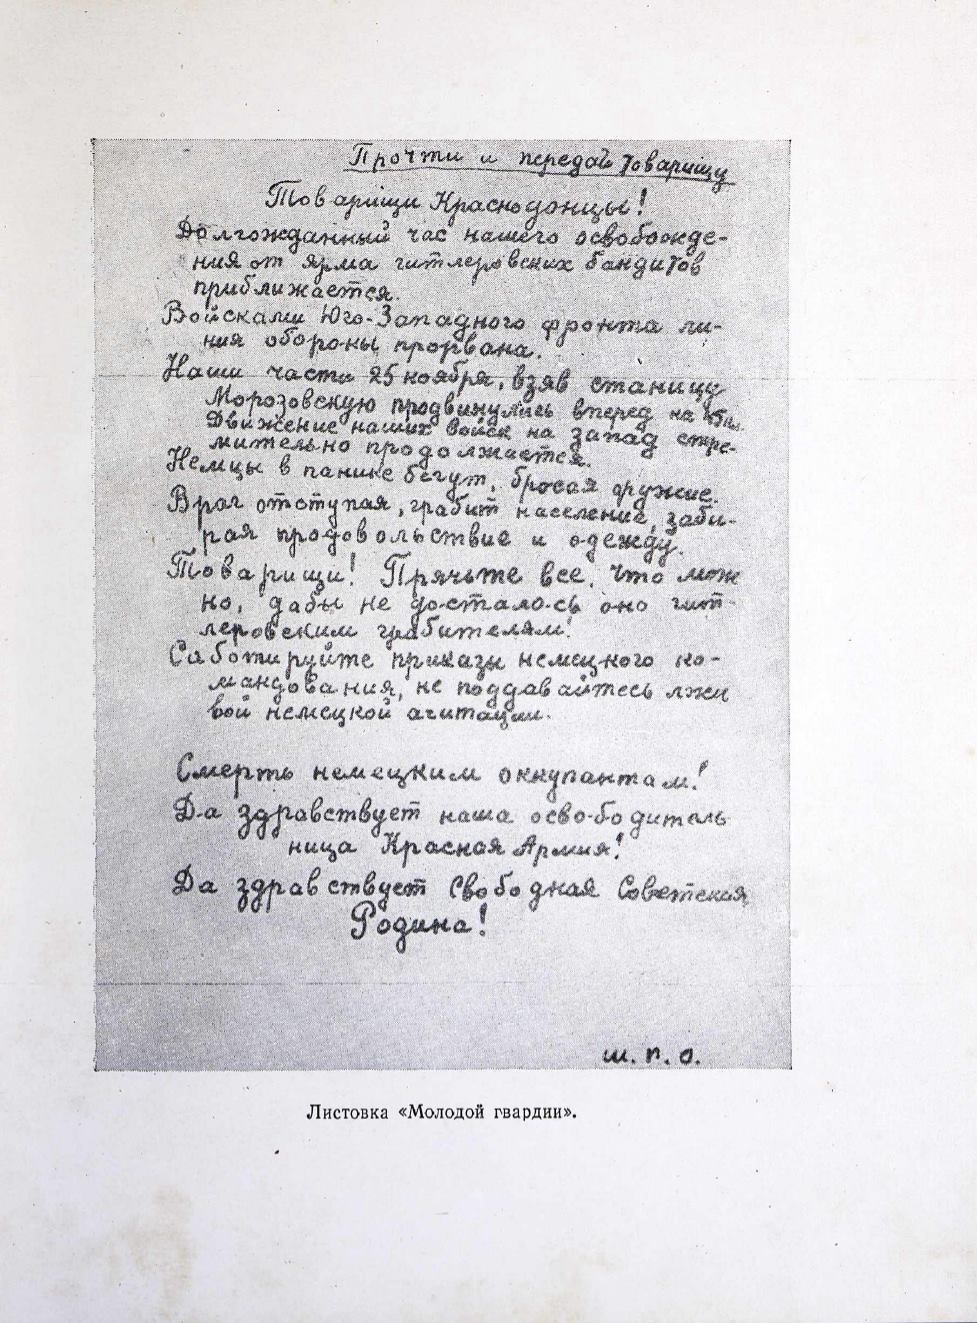 Прочти и передай товарищу
Товарищи Краснодонцы!
Долгожданный час нашего освобожде-
ния от ярма гитлеровских бандитов
приближается.
Войсками Юго-Западного фронта ли-
ния обороны прорвана.
Наши части 25 ноября, взяв станицу
Морозовскую продвинулись вперед на
Движение наших войск на запад стре-
мительно продолжается.
Немцы в панике бегут, бросая оружие.
Враг отступая, грабит население, заби-
рая продовольствие и одежду.
Товарищи! Прячьте все, что мож
но, дабы не досталось оно гит-
леровским грабителям!
Саботируйте приказы немецкого ко-
мандования, не поддавайтесь лжи
вой немецкой агитации.
Смерть немецким оккупантам!
Да здравствует наша освободитель
ница Красная Армия!
Да здравствует свободная Советская
Родина!
ш. п. о.
Листовка «Молодой гвардии».